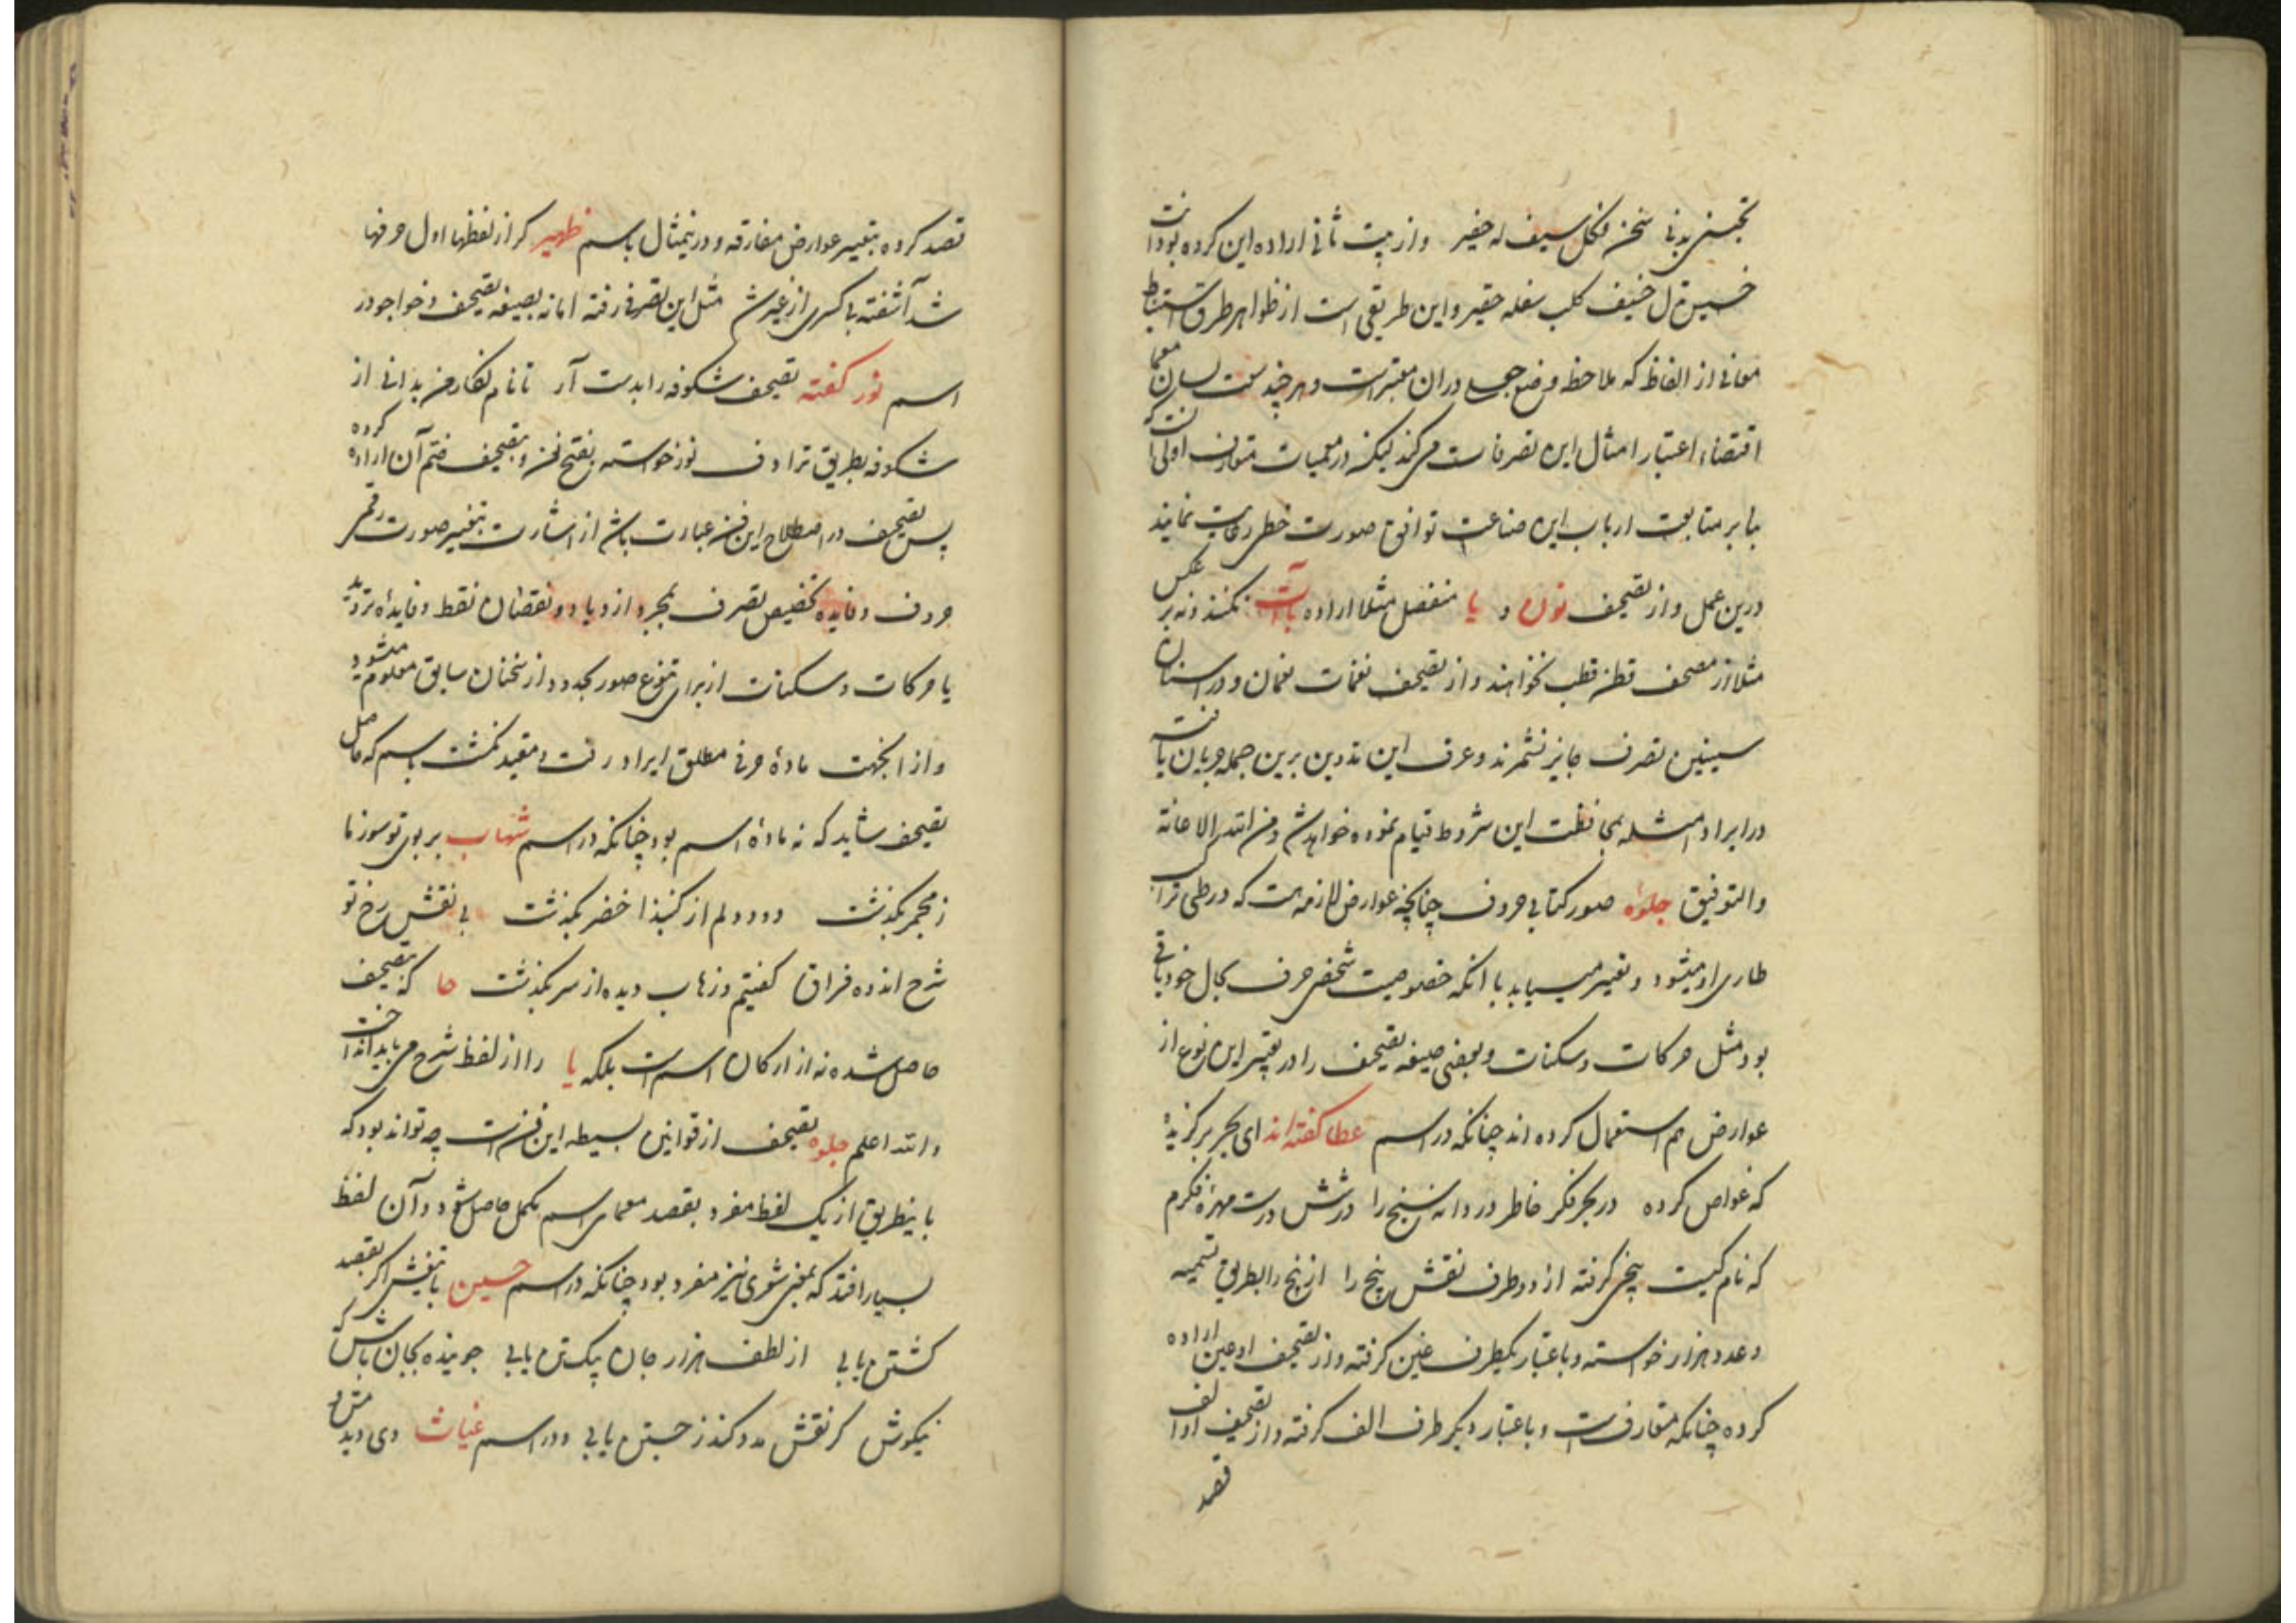 تجسنی بدنی سخن لکل سیف له خفیر واز بیت ثانی اراده این کرده بود انت
خسیس نزل خفیف کلب سفله حقیر واین طریقی است از ظواهر طرق استنباط
معانی از الفاظ که ملاحظه وضع جملی دران معتبرست وهر چند سمت لسان معما
اقتضاء اعتبار امثال این تصرفات میکند لیکن در معمیات متعارف اولی آنست که
بنابر متابعت ارباب این صناعت توافق صورت خطی رعایت نمایند
درین عمل واز تصحیف نون و یا منفصل مثلا اراده بآت نکنند ونه بر عکس
مثلا از مصحف قطن قطب نخواهند واز تصحیف نغمات نعمان ودر اسنان
سینین تصرف جایز نشمرند وعرف این تدوین برین جمله جریان یافت
در ایراد امثله بمحافظت این شروط قیام نموده خواهد شد ومن الله الاعانة
والتوفیق جلوه صور کتابی حروف چنانچه عوارض لازمه است که در طی تراکیب
طاری او میشود وتغییر مییابد با انکه خصوصیت شخص حرف بحال خود باقی
بود مثل حرکات وسکنات وبعضی صیغه تصحیف را در تغییر این نوع از
عوارض هم استعمال کرده اند چنانکه در اسم عطا گفته اند ای بحر برگزیدۀ
که غواص کرده در بحر فکر خاطر دردانه سنج را در شش درست مهرۀ فکرم
که نام کیست پنجی گرفته از دو طرف نقش پنج را از پنج را بطریق تسمیه
وعدد هزار خواسته وباعتبار یکطرف غین گرفته واز تصحیف او عین اراده
کرده چنانکه متعارفست وباعتبار دیگر طرف الف گرفته واز تصحیف او الف
قصد
قصد کرده بتغییر عوارض مفارقه ودرینمثال باسم ظهیر کر از لفظها اول حرفها
شد آشفته با کسری از غیرش مثل این تصرف رفته اما نه بصیغه تصحیف وخواجو در
اسم نور گفته تصحیف شکوفه را بدست آر تا نام نگار من بدانی از
شکوفه بطریق ترادف نور خواسته بفتح نون وبتصحیف ضم آن اراده کرده
پس تصحیف در اصطلاح این فن عبارت باشد از اشارت بتغییر صورت رقمی
حروف وفایده تخصیص تصرف بمجرد ازدیاد ونقصان نقط وفایدۀ تردید
با حرکات وسکنات از برای تنوع صور مجدد واز سخنان سابق معلوم میشود
واز اینجهت مادۀ حرفی مطلق ایراد رفت ومقید نگشت باسم که حاصل
تصحیف شاید که نه مادۀ اسم بود چنانکه در اسم شهاب بر بوی تو سوز ما
ز مجمر بگذشت ودود دلم از گنبد اخضر بگذشت بی نقش رخ تو
شرح اندوه فراق گفتیم وز آب دیده از سر بگذشت حا که بتصحیف
حاصل شده نه از ارکان اسمست بلکه یا را از لفظ شرح می باید انداخت
والله اعلم جلوه تصحیف از قوانین بسیطه این فنست چه تواند بود که
باینطریق از یک لفظ مفرد بقصد معمای اسم مکمل حاصل شود وآن لفظ
بسیار افتد که بمعنی شعری نیز مفرد بود چنانکه در اسم حسین با تیغش اگر بقصد
کشتن یابی از لطف هزار جان بیک تن یابی جوینده بجان باش که
نیکوش گر نقش مدد کند ز جستن یابی ودر اسم غیاث دی دید